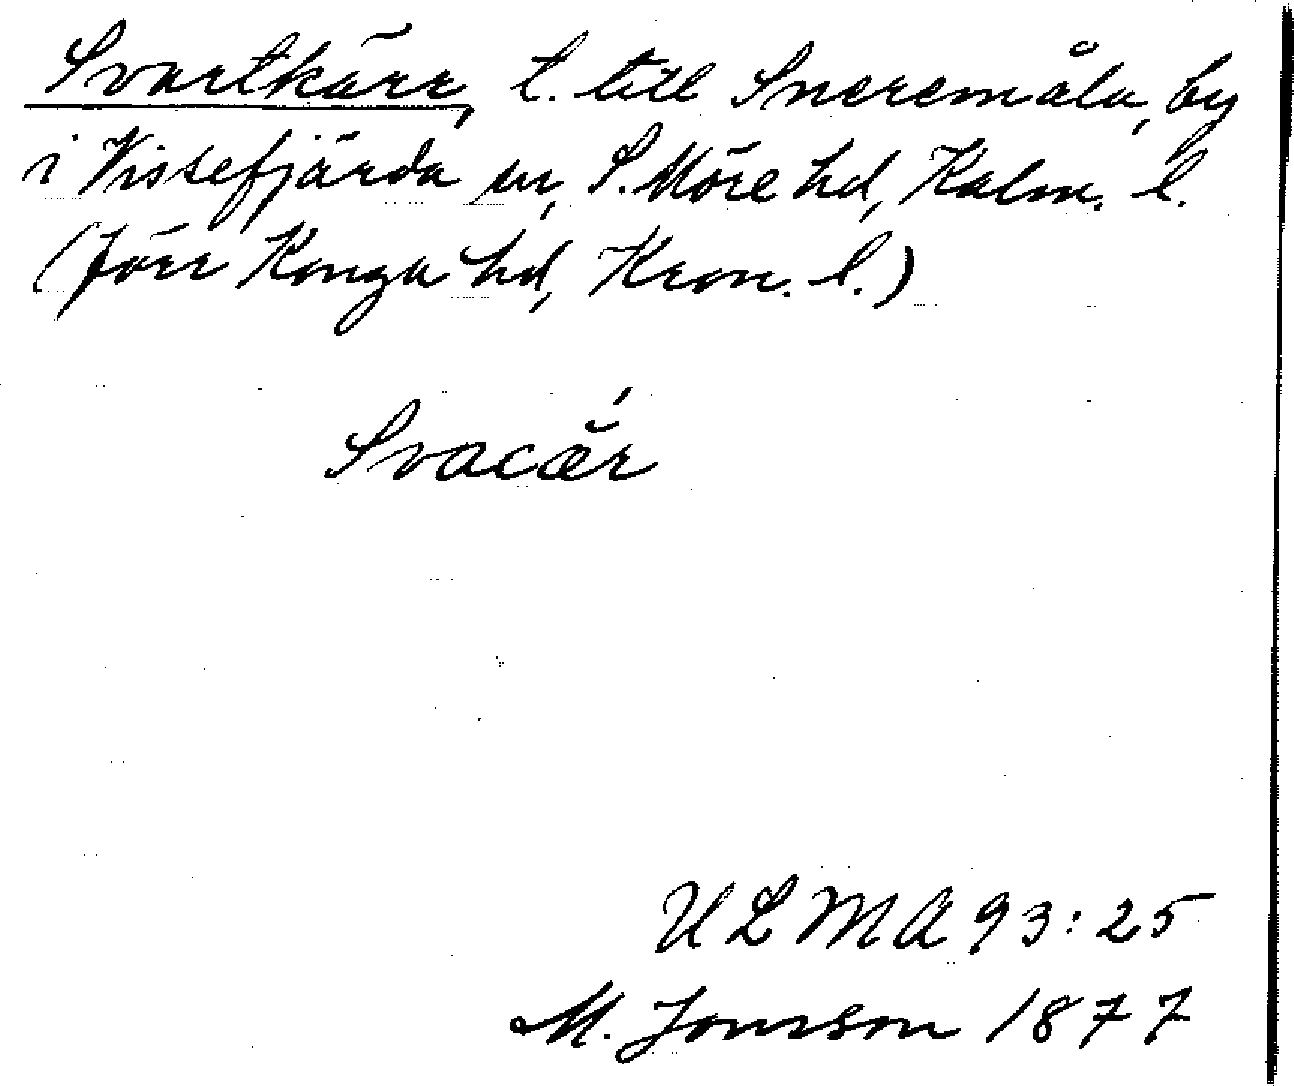 Svartkärr, t. till Sneremåla, by
i Vissefjärda sn, S. Möre hd, Kalm. l.
(förr Konga hd, Kron. l.)
Svacǽr
ULMA 93:25
M. Jonsson 1877